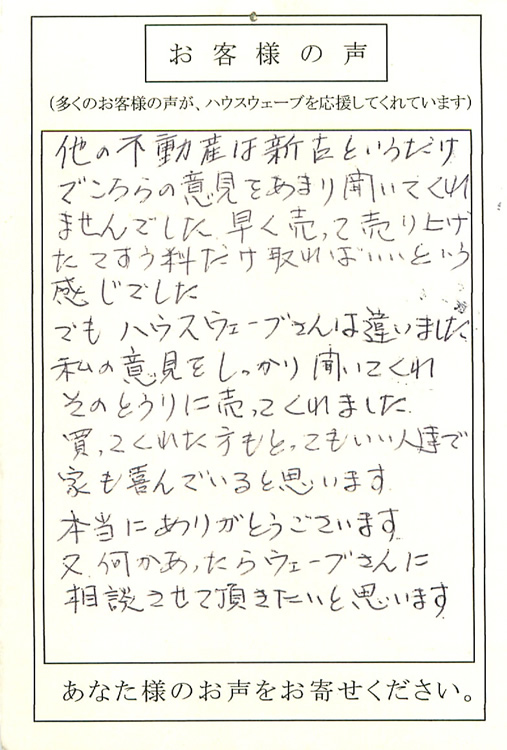 お客様の声
(多くのお客様の声が、ハウスウェーブを応援してくれています)
他の不動産は新古というだけ
でこちらの意見をあまり聞いてくれ
ませんでした 早く売って売り上げ
たてすう料だけ取ればいいという
感じでした
でも ハウスウェーブさんは違いました
私の意見をしっかり聞いてくれ
そのとうりに売ってくれました
買ってくれた方もとってもいい人達で
家も喜んでいると思います
本当にありがとうございます
又 何かあったらウェーブさんに
相談させて頂きたいと思います
あなた様のお声をお寄せください。